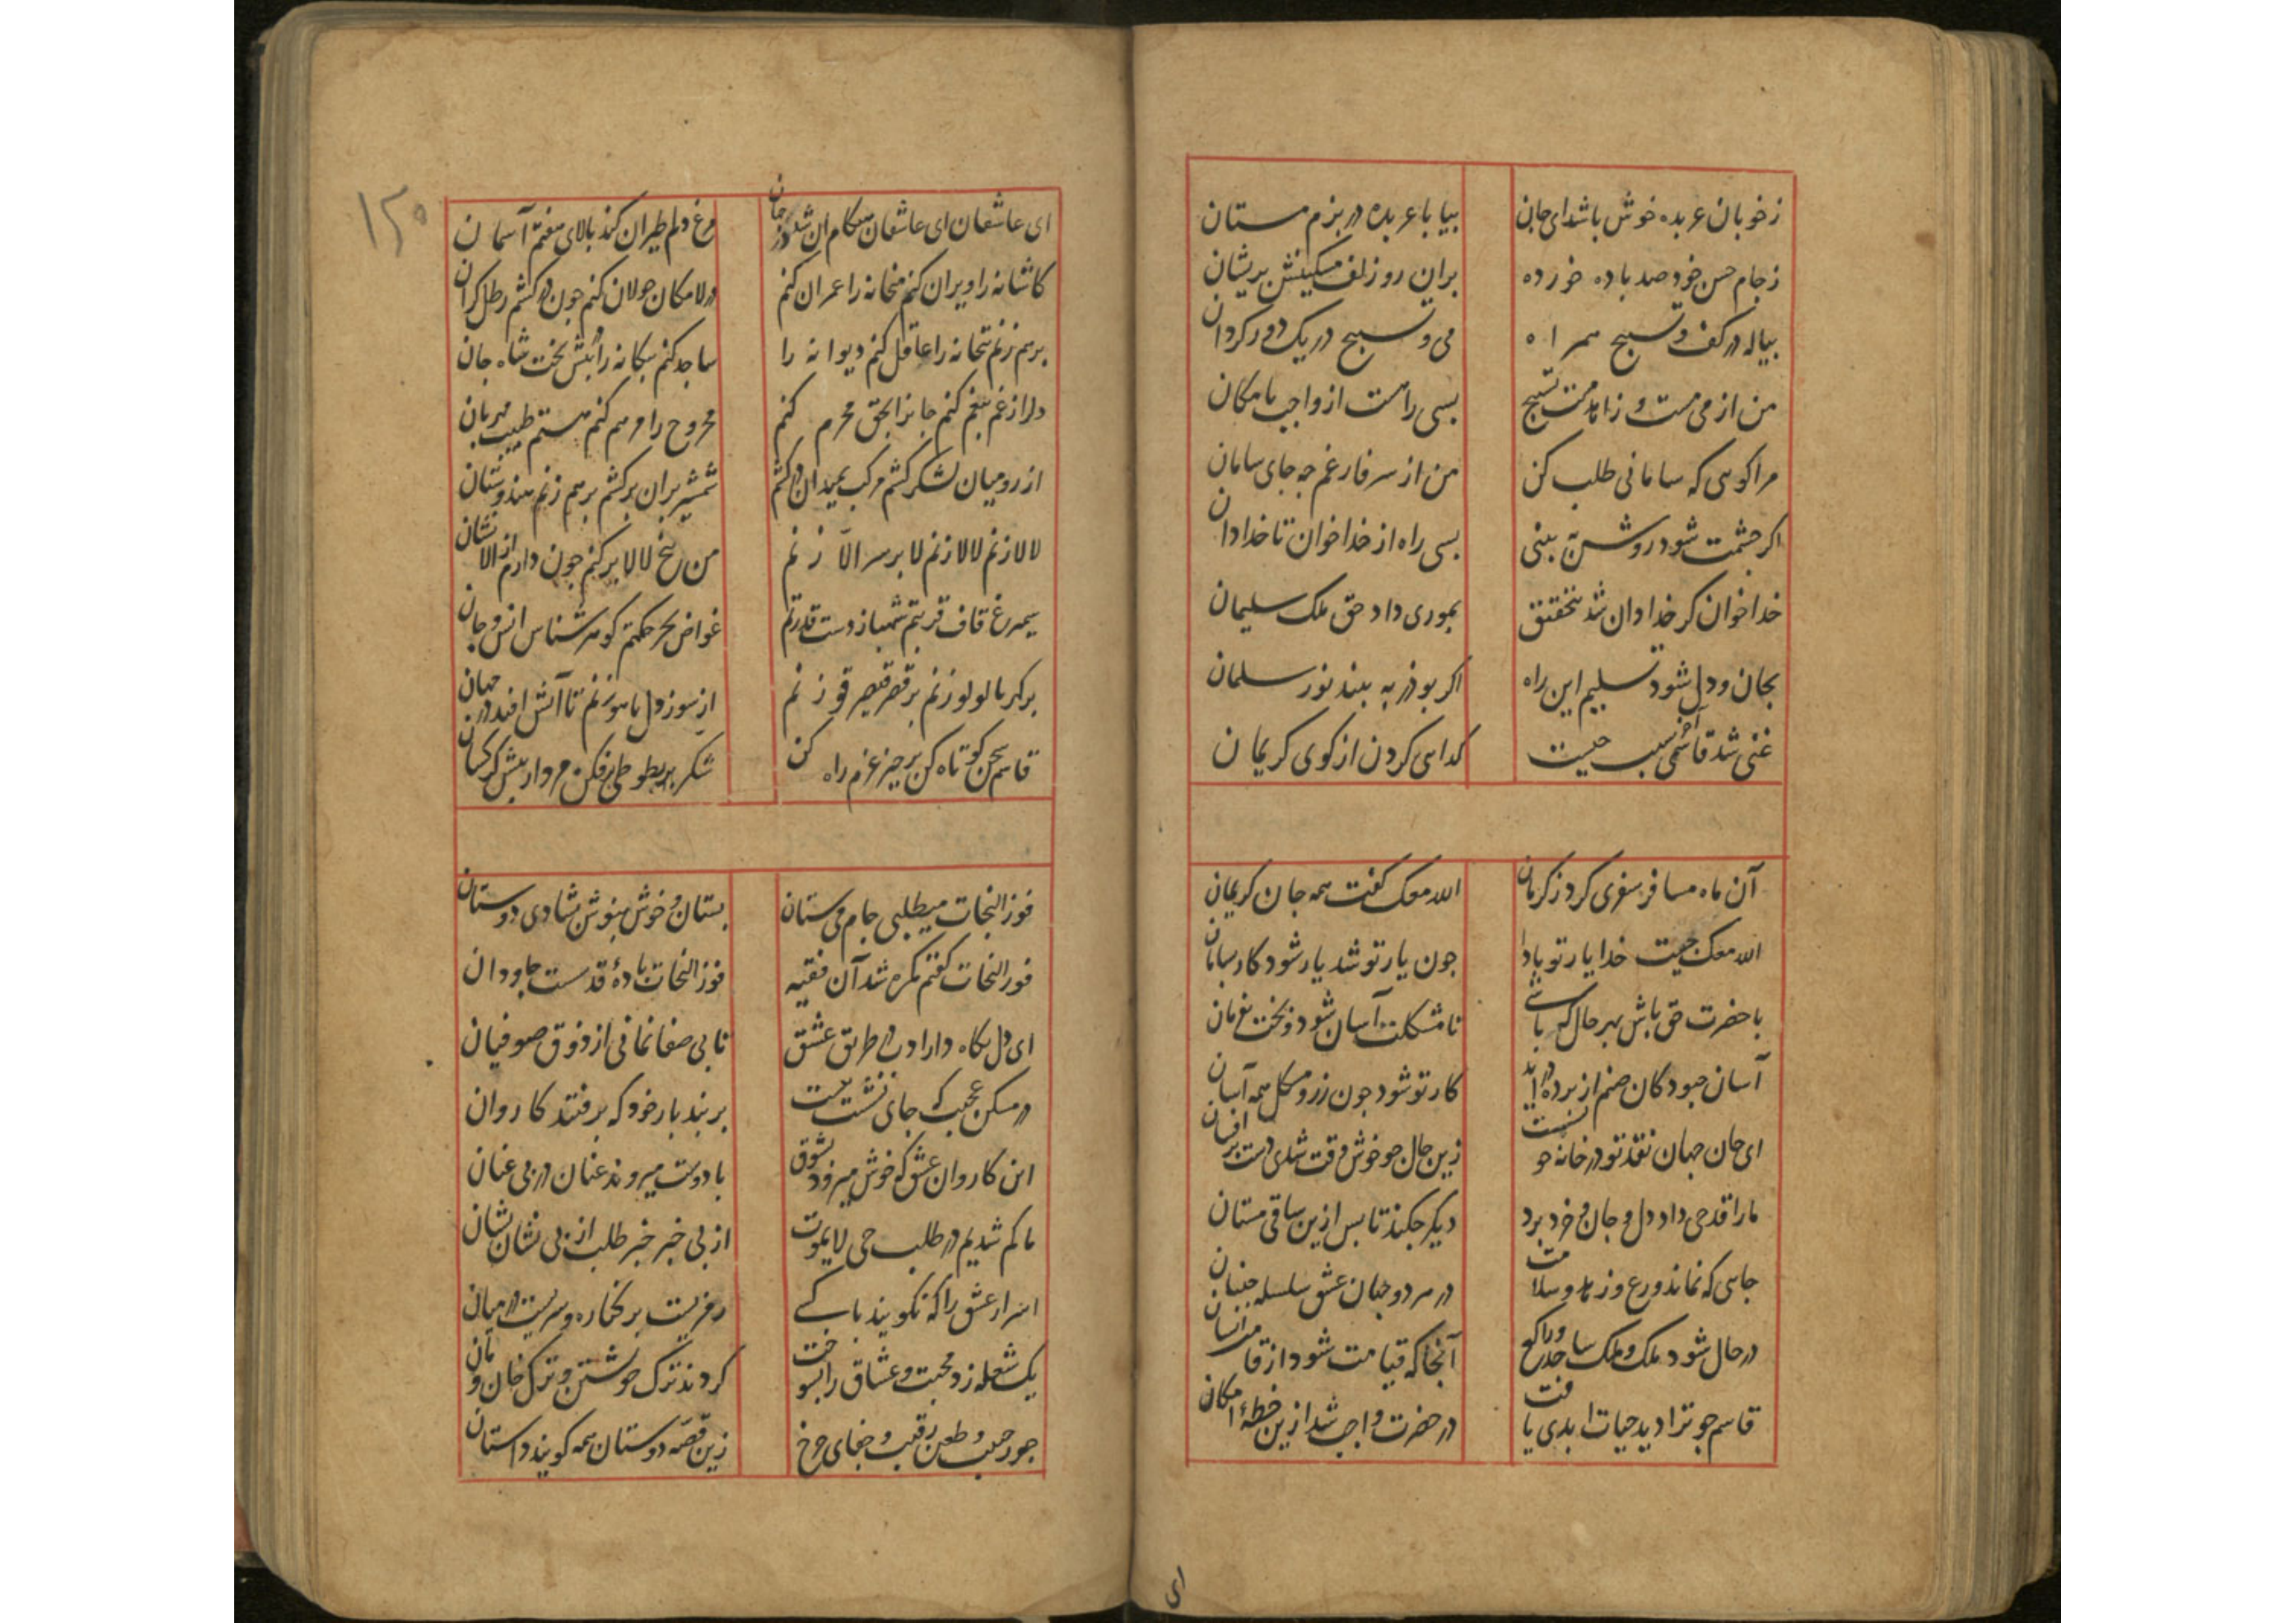 زخوبان عربده خوش باشد ای جان بیا با عربده در بزم مستان
زجام حسن خود صد باده خورده بران رو زلف مسکینش پریشان
پیاله در کف و تسبیح همراه می و تسبیح در یک دور کردان
من از می مست و زاهد مست تسبیح بسی راهست از واجب بامکان
مرا کویی که سامانی طلب کن من از سر فارغم چه جای سامان
اکر چشمت شود روشن به بینی بسی راه از خدا خوان تا خدا دان
خدا خوان کر خدا دان شد بتحقیق بموری داد حق ملک سلیمان
بجان و دل شود تسلیم این راه اکر بوذر به بیند نور سلمان
غنی شد قاسمی آخر سبب چیست کدایی کردن از کوی کریمان
آن ماه مسافر سفری کرد ز کرمان الله معک کفت همه جان کریمان
الله معک چیست خدا یار تو بادا چون یار تو شد یار شود کار بسامان
با حضرت حق باش بهر حال که باشی تا مشکلت آسان شود و بخت بفرمان
آسان چو بود کان صنم از پرده در آید کار تو شود چون زر و مشکل همه آسان
ای جان جهان نقد تو در خانه چو نیست زین حال چو خوش وقت شدی دست برافشان
ما را قدحی داد دل و جان و خرد برد دیکر چکند تا پس ازین ساقی مستان
جایی که نماند ورع و زهد و سلامت در هر دو جهان عشق سلسله جنبان
در حال شود ملک و ملک ساجد و راکع آنجا که قیامت شود از قامت انسان
قاسم چو ترا دید حیات ابدی یافت در حضرت واجب شد ازین خطهٔ امکان
ای
۱۲۵
ای عاشقان ای عاشقان هنکام آن شد کز جهان مرغ دلم طیران کند بالای هفتم آسمان
کاشانه را ویران کنم میخانه را عمران کنم در لامکان جولان کنم چون در کشم رطل کران
برهم زنم بتخانه را عاقل کنم دیوانه را ساجد کنم بیکانه را پیش تخت شاه جان
دلرا ز غم بیغم کنم جانرا بحق محرم کنم مجروح را مرهم کنم هستم طبیب مهربان
از رومیان لشکر کشم مرکب بمیدان در کشم شمشیر بران برکشم برهم زنم هندوستان
لالا زنم لالا زنم لا بر سر الا زنم من بیخ لالا برکنم چون دارم از الا نشان
سیمرغ قاف قربتم شهباز دست قدرتم غواص بحر حکمتم کوهر شناس انس و جان
برکر با لولو زنم بر قصر قیصر قو زنم از سوز دل یاهو زنم تا آتش افتد در جهان
قاسم سخن کوتاه کن برخیز عزم راه کن شکر بر طوطی فکن مردار پیش کرکسان
فوز النجات میطلبی جام می ستان بستان و خوش بنوش بشادی دوستان
فوز النجات کفتم مکره شد آن فقیه فوز النجات بادهٔ قدست جاودان
ای دل نکاه دار ادب در طریق عشق تا بی صفا نمانی از ذوق صوفیان
در مسکن عجب که جای نشست نیست بر بند بار خود که برفتند کاروان
این کاروان عشق که خوش میرود بشوق با دوست میروند عنان در پی عنان
ما کم شدیم در طلب حی لایموت از بی خبر خبر طلب از بی نشان نشان
اسرار عشق را که نکویند با کسی رمزیست بر کناره و سریست در میان
یک شعله زد محبت و عشاق را بسوخت کردند ترک خویشتن و ترک خان و مان
جور حبیب و طعن رقیب و جفای چرخ زین قصه دوستان همه کویند داستان